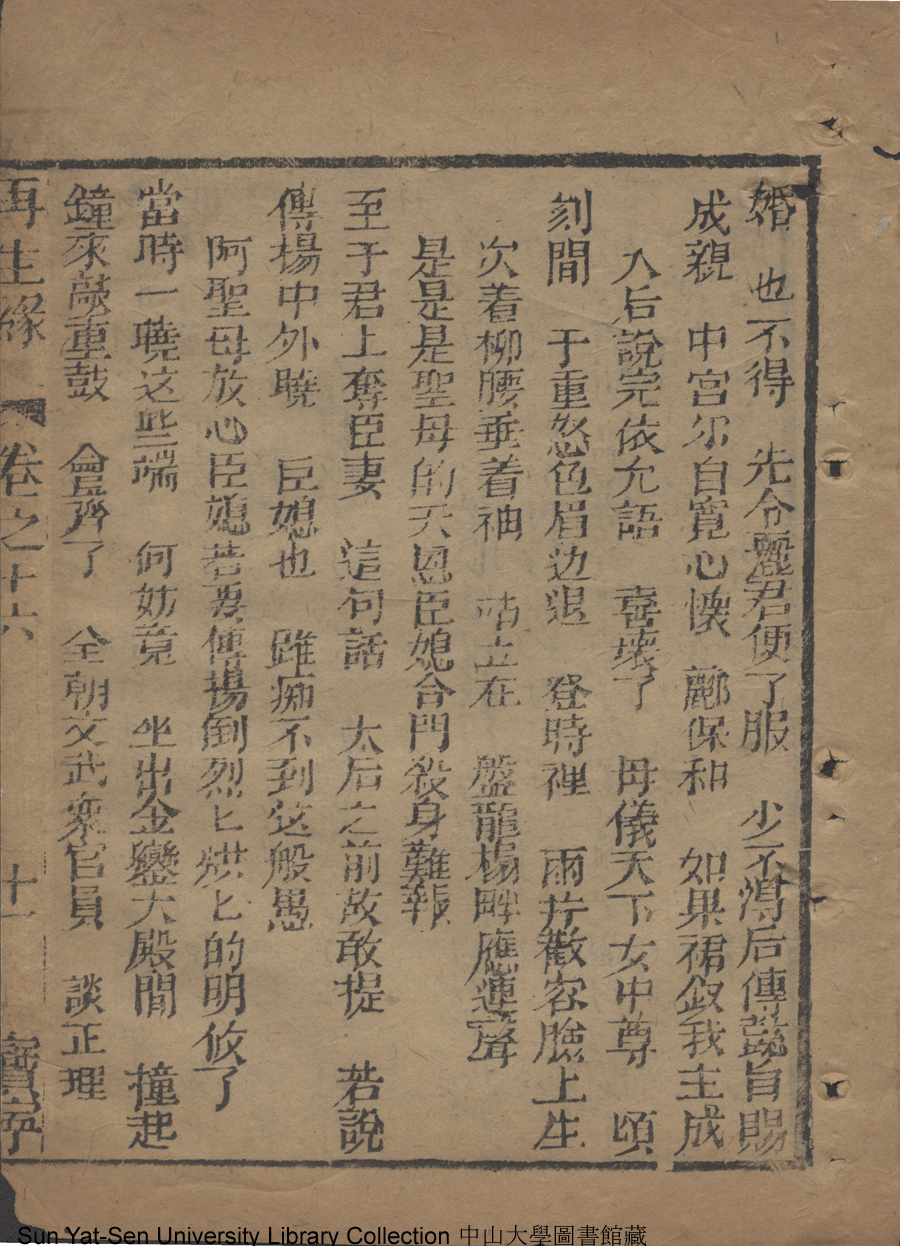 婚　也不得　先令麗君便了服　少不得后傳懿旨賜
成親　中宮尓自寬心懐　酈保和　如果裙釵我主成
入后說完依允語　喜壊了　母儀天下女中尊　頃
刻間　于重怒色眉边退　登時裡　兩片歡容臉上生
次着柳腰垂着袖　站立在　盤龍榻畔應連聲
是是是聖母的天恩臣媳合門殺身難報
至于君上奪臣妻　這句話　太后之前故敢提　若說
傳楊中外曉　臣媳也　雖痴不到这般愚
阿聖母放心臣媳若要傳揚倒烈匕烘匕的明攸了
當時一曉这些端　何妨竟　坐出金鑾大殿間　撞起
鐘來敲重鼓　會齊了　全朝文武衆官員　談正理
再生緣　卷之十六　十一　寳寕
Sun Yat-Sen University Library Collection 中山大學圖書館藏